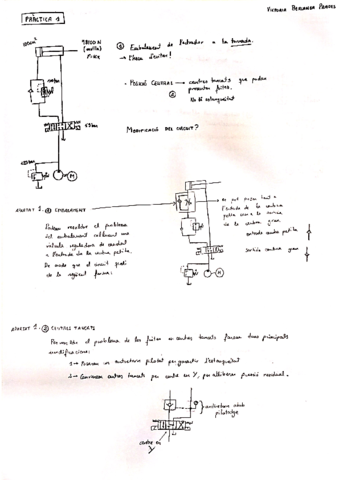 PRACTICA 1
① Embalament de l'actuador a la
→ S'ha d'evitar!
· POSICIÓ CENTRAL → centres tancats que poden
② presentar fuites.
No hi estanqueïtat
MODIFICACIÓ DEL CIRCUIT?
APARTAT 1. ① EMBALAMENT
Podem resoldre el problema
del embalament col·locant una
vàlvula reguladora de caudal
a l'entrada de la cambra petita.
De mode que el circuit
de la següent forma:
es pot posar tant a
l'entrada de la cambra
petita com a la sortida
de la cambra
entrada cambra petita
sortida cambra gran
APARTAT 1. ② CENTRES TANCATS
Per resoldre el problema de les fuites en centres tancats farem dues principals
modificacions:
1 → Posarem un antiretorn pilotat per garantir l'estanqueïtat
2 → Canviarem centres tancats per centre en Y, per alliberar pressió residual.
antiretorn amb
pilotatge
centre en
Y